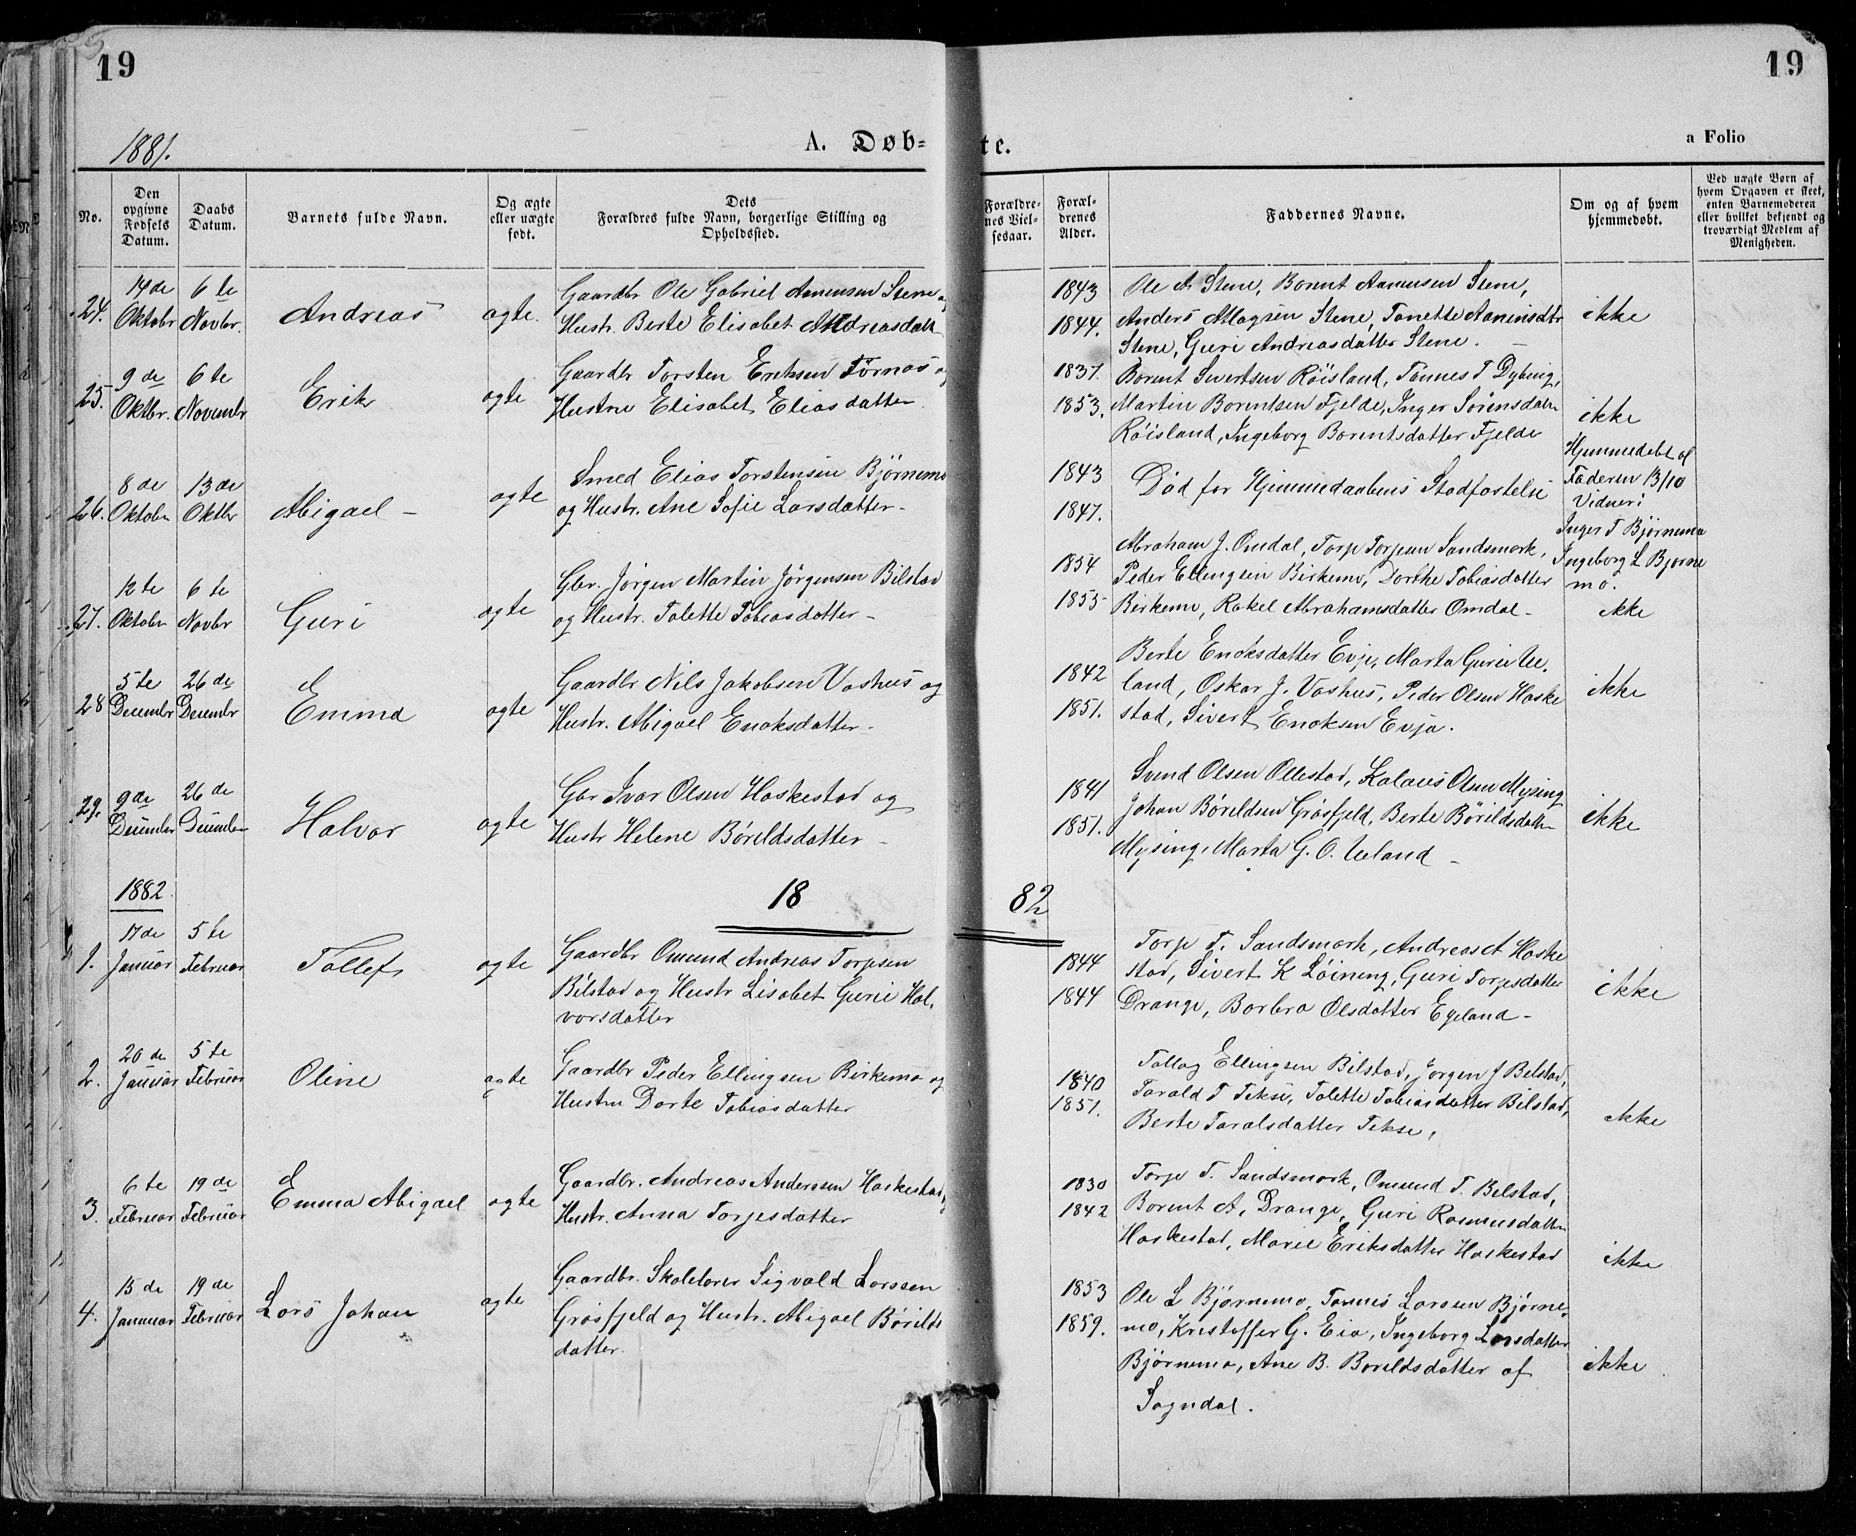 19
19
1881.
A. Døb-
te.
a Folio
No.
Den opgivne Fødsels Datum.
Daabs Datum.
Barnets fulde Navn.
Og ægte eller uægte født.
Dets Forældres fulde Navn, borgerlige Stilling og Opholdssted.
Forældrenes Vielsesaar.
Forældrenes Alder.
Faddernes Navne.
Om og af hvem hjemmedøbt.
Ved uægte Børn af hvem Opgaven er skeet, enten Barnemoderen eller hvilket bekjendt og troværdigt Medlem af Menigheden.
24. 14de Oktobr 6te Novbr. Andreas ægte.
Gaardbr Ole Gabriel Amensen Stene og
Hustr. Berte Elisabet Andreasdatter
1843
1844.
Ole A Stene, Bornt Aanensen Stene,
Anders Magsen Stene, Tonette Aaninsdtr
Stene, Guri Andreasdatter Stene.
ikke
25. 9de Oktbr. 6te Novembr Erik ægte
Gaardbr Torsten Eriksen Førnes og
Hustru Elisabet Eliasdatter
1837.
1853.
Bornt Sivertsen Røisland, Tønnes T Dybing,
Martin Borntsen Fjelde, Inger Sørensdatter
Røisland, Ingeborg Borntsdatter Fjelde
ikke
26. 8de Oktober 13de Oktbr Abigael - ægte
Smed Elias Torstensen Bjørnemo
og Hustr. Ane Sofie Larsdatter -
1843
1847.
Død før Hjemmedaabens Stadfæstelse
Hjemmedøbt af
Faderen 13/10
Vidner:
Inger T Bjørnemo
Ingeborg L Bjørne
mo.
27. 12te Oktober 6te Novbr Guri ægte
Gbr. Jørgen Martin Jørgensen Bilstad
og Hustr. Talette Tobiasdatter -
1854
1855
Abraham J. Omdal, Torje Torjesen Sandsmark,
Peder Ellingsen Birkemo, Dorthe Tobiasdatter
Birkemo, Rakel Abrahamsdatter Omdal -
ikke
28 5te Decembr 26de Decembr Emma ægte
Gaardbr Nils Jakobsen Vashus og
Hustr. Abigael Enoksdatter -
1842
1851.
Berte Enoksdatter Evje, Marta Gurie Ue.
land, Oskar J. Vashus, Peder Olsen Haske
stad, Sivert Enoksen Evja.
ikke
29. 9de Decembr 26de December Halvor ægte
Gbr Ivar Olsen Haskestad og
Hustr Helene Børildsdatter -
1841
1851.
Svend Olsen Ollestad, Kalaus Olsen Mysing
Johan Børildsen Grøsfjeld, Berte Børildsdatter
Mysing, Marta G. O. Ueland -
ikke
1882.
18
82
1. 17de Januar 5te Februar Tollef ægte
Gaardbr Omund Andreas Torjesen
Bilstad og Hustr Lisabet Gurie Hal,
vorsdatter
1844
1844
Torje T. Sandsmark, Andreas A Haske
stad, Sivert K Løining, Guri Torjesdatter
Drange, Barbra Olsdatter Egeland -
ikke
2. 20de Januar 5te Februar Oline ægte
Gaardbr Peder Ellingsen Birkemo og
Hustru Dorte Tobiasdatter
1840
1851.
Tollag Ellingsen Bilstad, Jørgen J Bilstad,
Tarald T Tekse, Talette Tobiasdatter Bilstad,
Berte Taralsdatter Tekse,
ikke
3. 6te Februar 19de Februar Emma Abigael ægte
Gaardbr. Andreas Anderssen Haskestad og
Hustr. Anna Torjesdatter
1830
1842
Torje T. Sandsmark, Omund T. Bilstad,
Bornt A. Drange, Guri Rasmusdatter
Haskestad, Marie Eriksdatter Haskestad
ikke
4. 15de Januar 19de Februar Lars Johan ægte
Gaardbr. Skolelærer Sigvald Larssen
Grøsfjeld og Hustr. Abigael Børilds
datter.
1853
1859.
Ole L Bjørnemo, Tønnes Larssen Bjørne,
mo, Kristoffer G. Eia, Ingeborg Larsdatter
Bjørnemo, Ane B. Børildsdatter af
Sogndal.
ikke